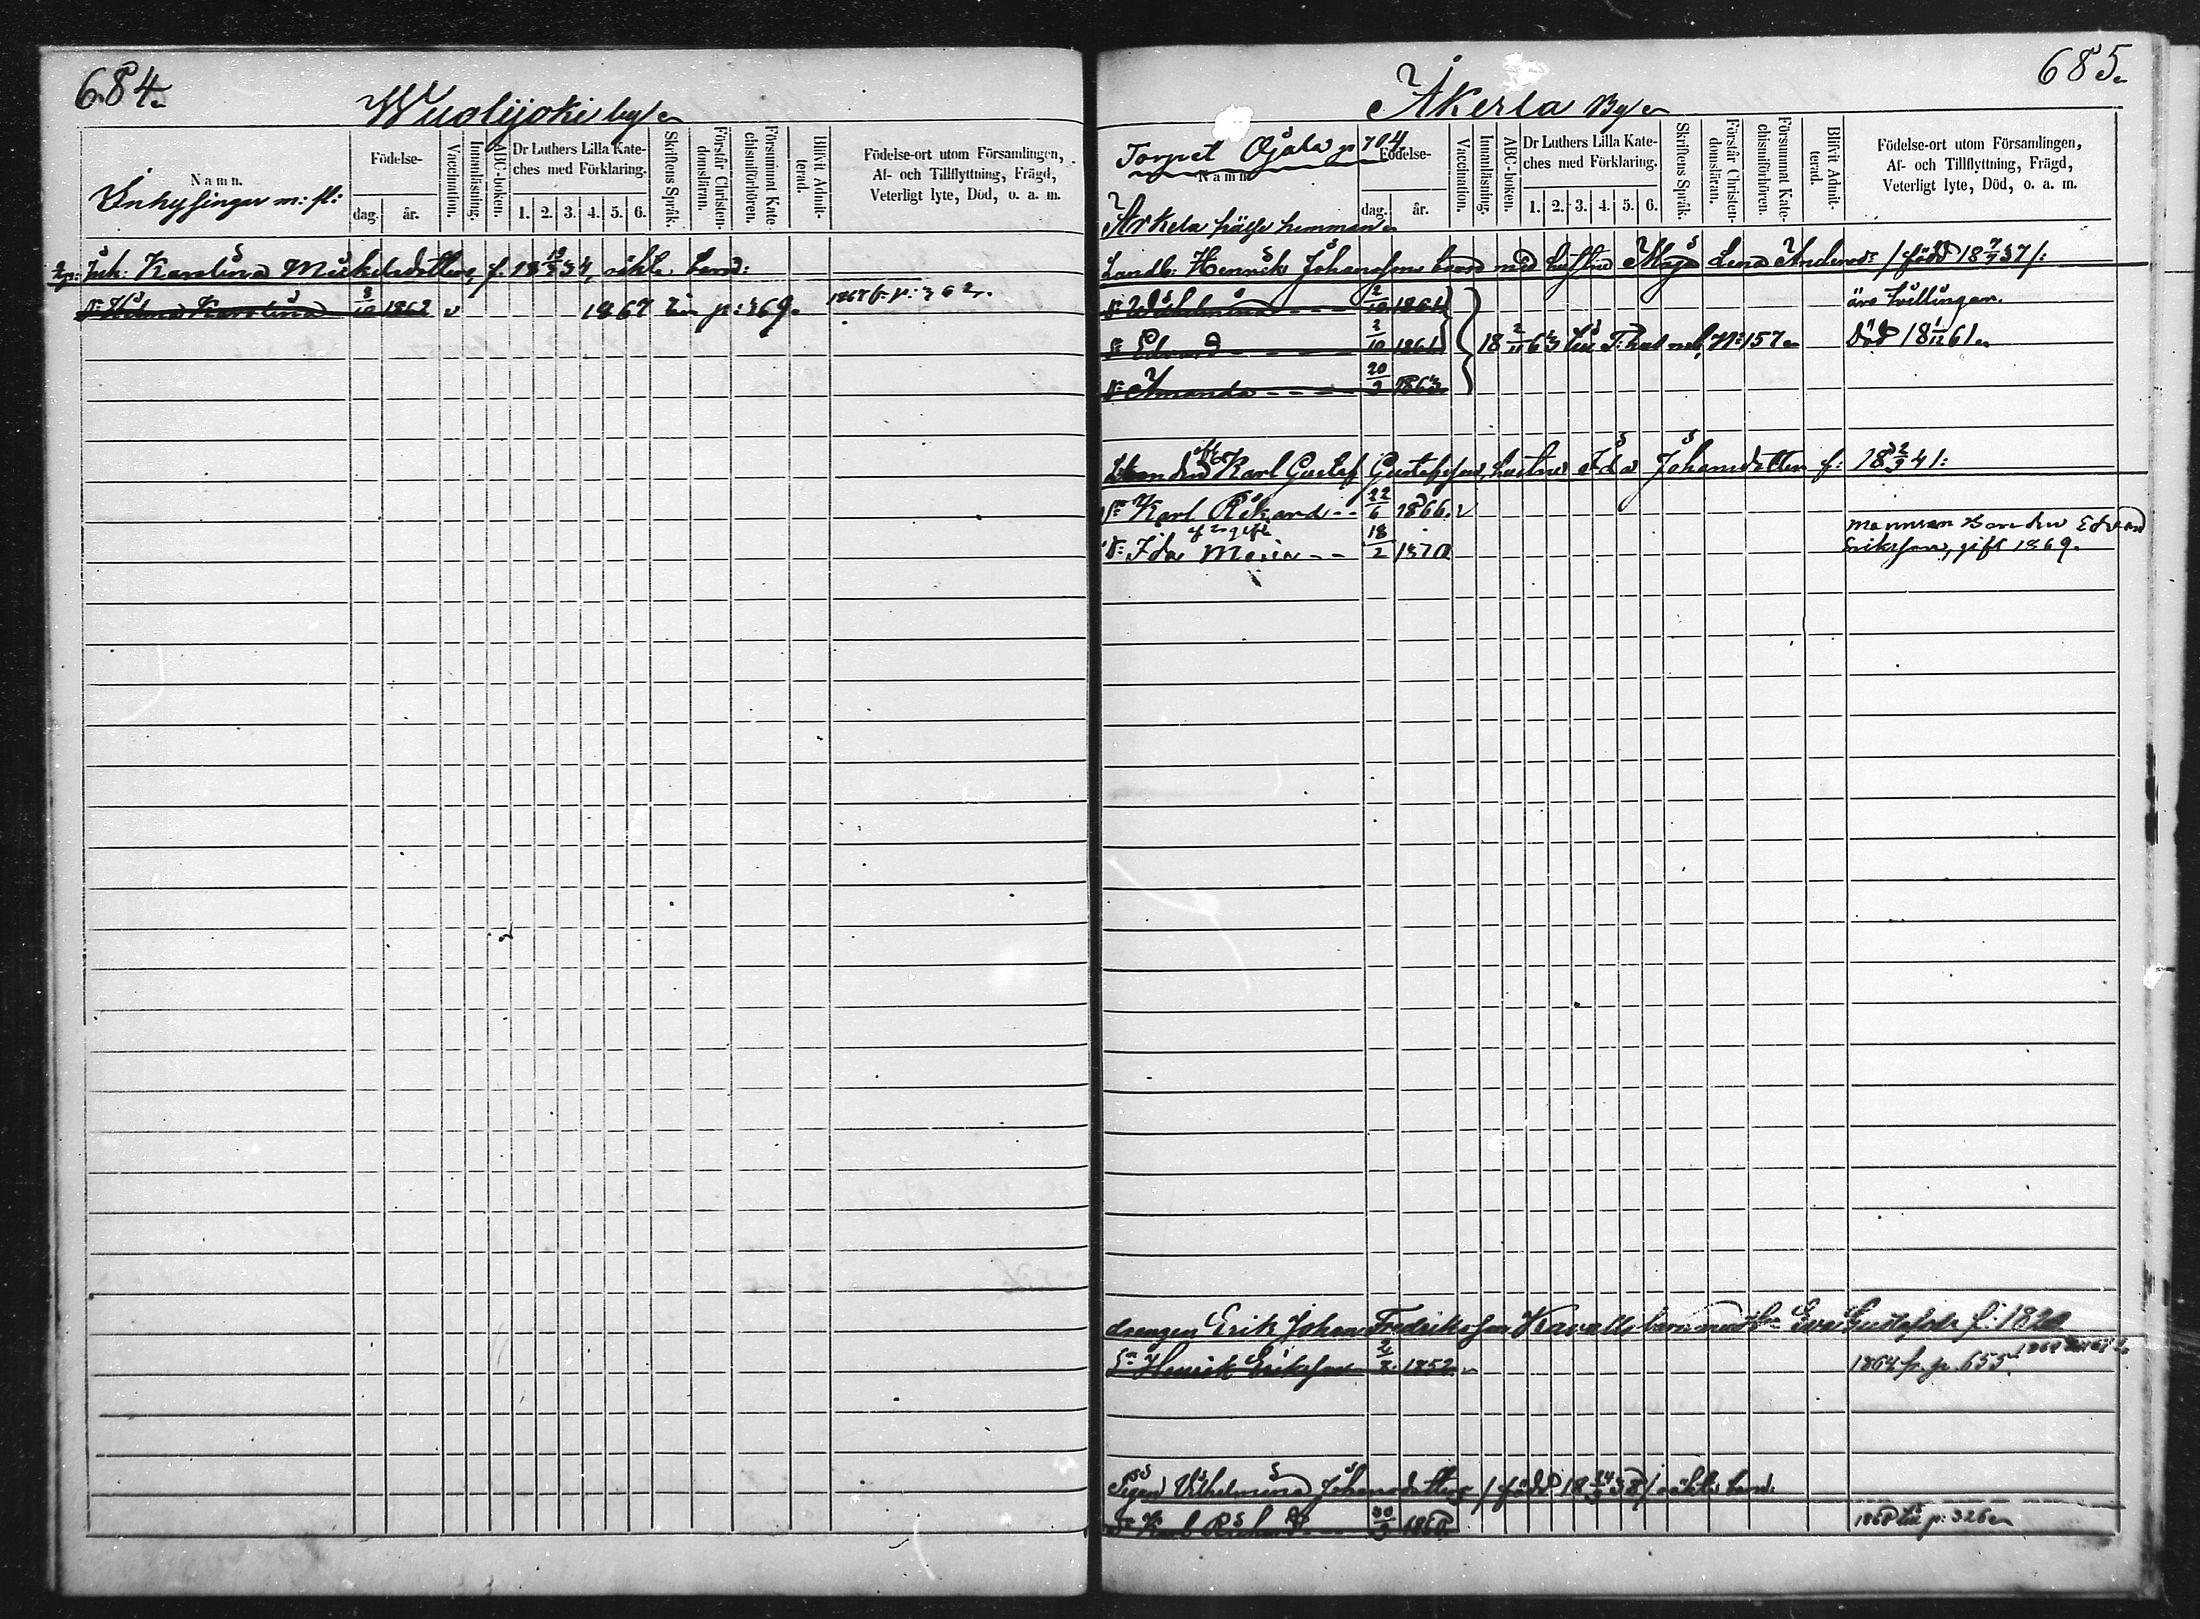 684.
Wuolijoki by
Namn.
Inhysingar m: fl:
Födelse-
dag. år.
Vaccination.
Innanläsning.
ABC-boken.
Dr Luthers Lilla Kate-
ches med Förklaring.
1. 2. 3. 4. 5. 6.
Skriftens Språk.
Förstår Christen-
domsläran.
Försummat Kate-
chismiförhören.
Blifvit Admit-
terad.
Födelse-ort utom Församlingen,
Af- och Tillflyttning, Frägd,
Veterligt lyte, Död, o. a. m.
Karolina Mickelsdotters, f. 34, oäkta barn:
Dr Hilma Karolina 1862 v 1867 till p: 369. 1867 fr. p: 362.
685.
Åkerla By
Torpet Ojala p 704
Namn
Arkela hälft hemman
Födelse-
dag. år.
Vaccination.
Innanläsning.
ABC-boken.
Dr Luthers Lilla Kate-
ches med Förklaring.
1. 2. 3. 4. 5. 6.
Skriftens Språk.
Förstår Christen-
domsläran.
Försummat Kate-
chismiförhören.
Blifvit Admit-
terad.
Födelse-ort utom Församlingen,
Af- och Tillflyttning, Frägd,
Veterligt lyte, Död, o. a. m.
Landb: Henrik Johanssons barn med hustru Maja Lena Andersdr /född 18 7/7 37/:
Dr Wilhelmina 2/10 1861 äro tvillingar.
Sn Edvard 2/10 1861 18 2/11 63 till 157 Död 18 1/12 61
Dr Amanda 20/2 1863
Karl Gustaf Gustafsson, hustru Ida Johansdotter f: 18 41:
Sn Karl Rikard 22/6 1866. v
af 2 gifte
Dr Ida Maria 18/2 1870
mannen Bonden Edvard
Eriksson, gift 1869.
drengen Erik Johan Fredriksson Kavalls barn med Eva Gustafsdr f: 1820
Sn Henrik Eriksson 1852 v 1864 fr. p. 655
Pigan Vilhelmina Johansdotters /född 18 24/3 38/ oäkta barn.
Sn Karl Richard 30/3 1860 1868 till p: 326